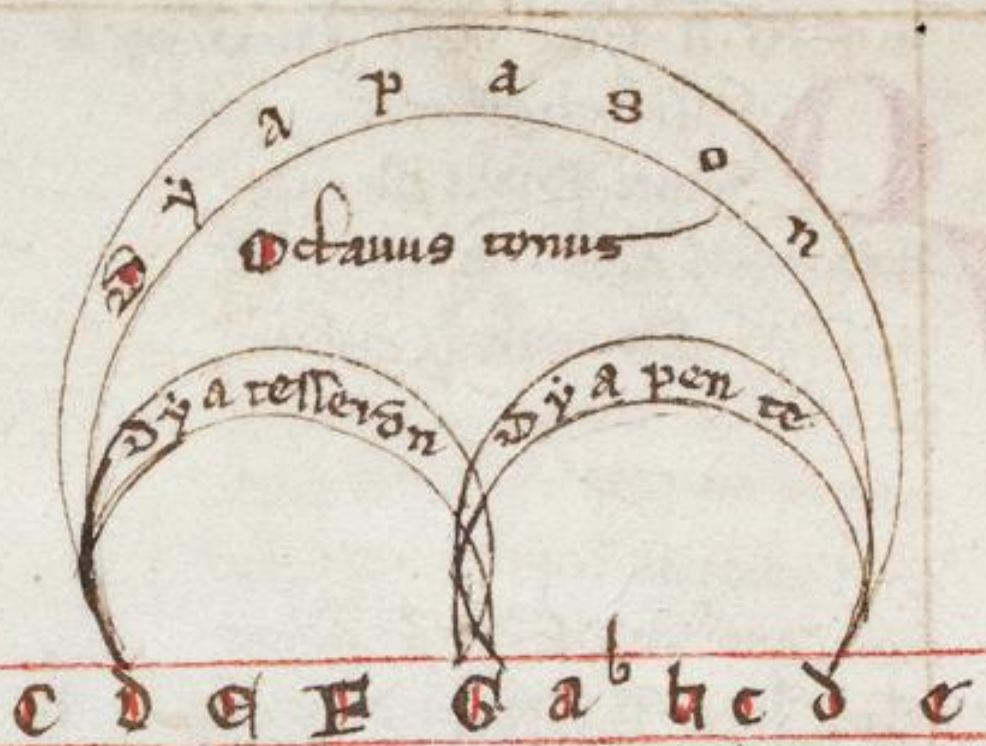 Dÿapason
Octauus tonus
dÿatesseron
dÿapente
C D E F G a b h c d e